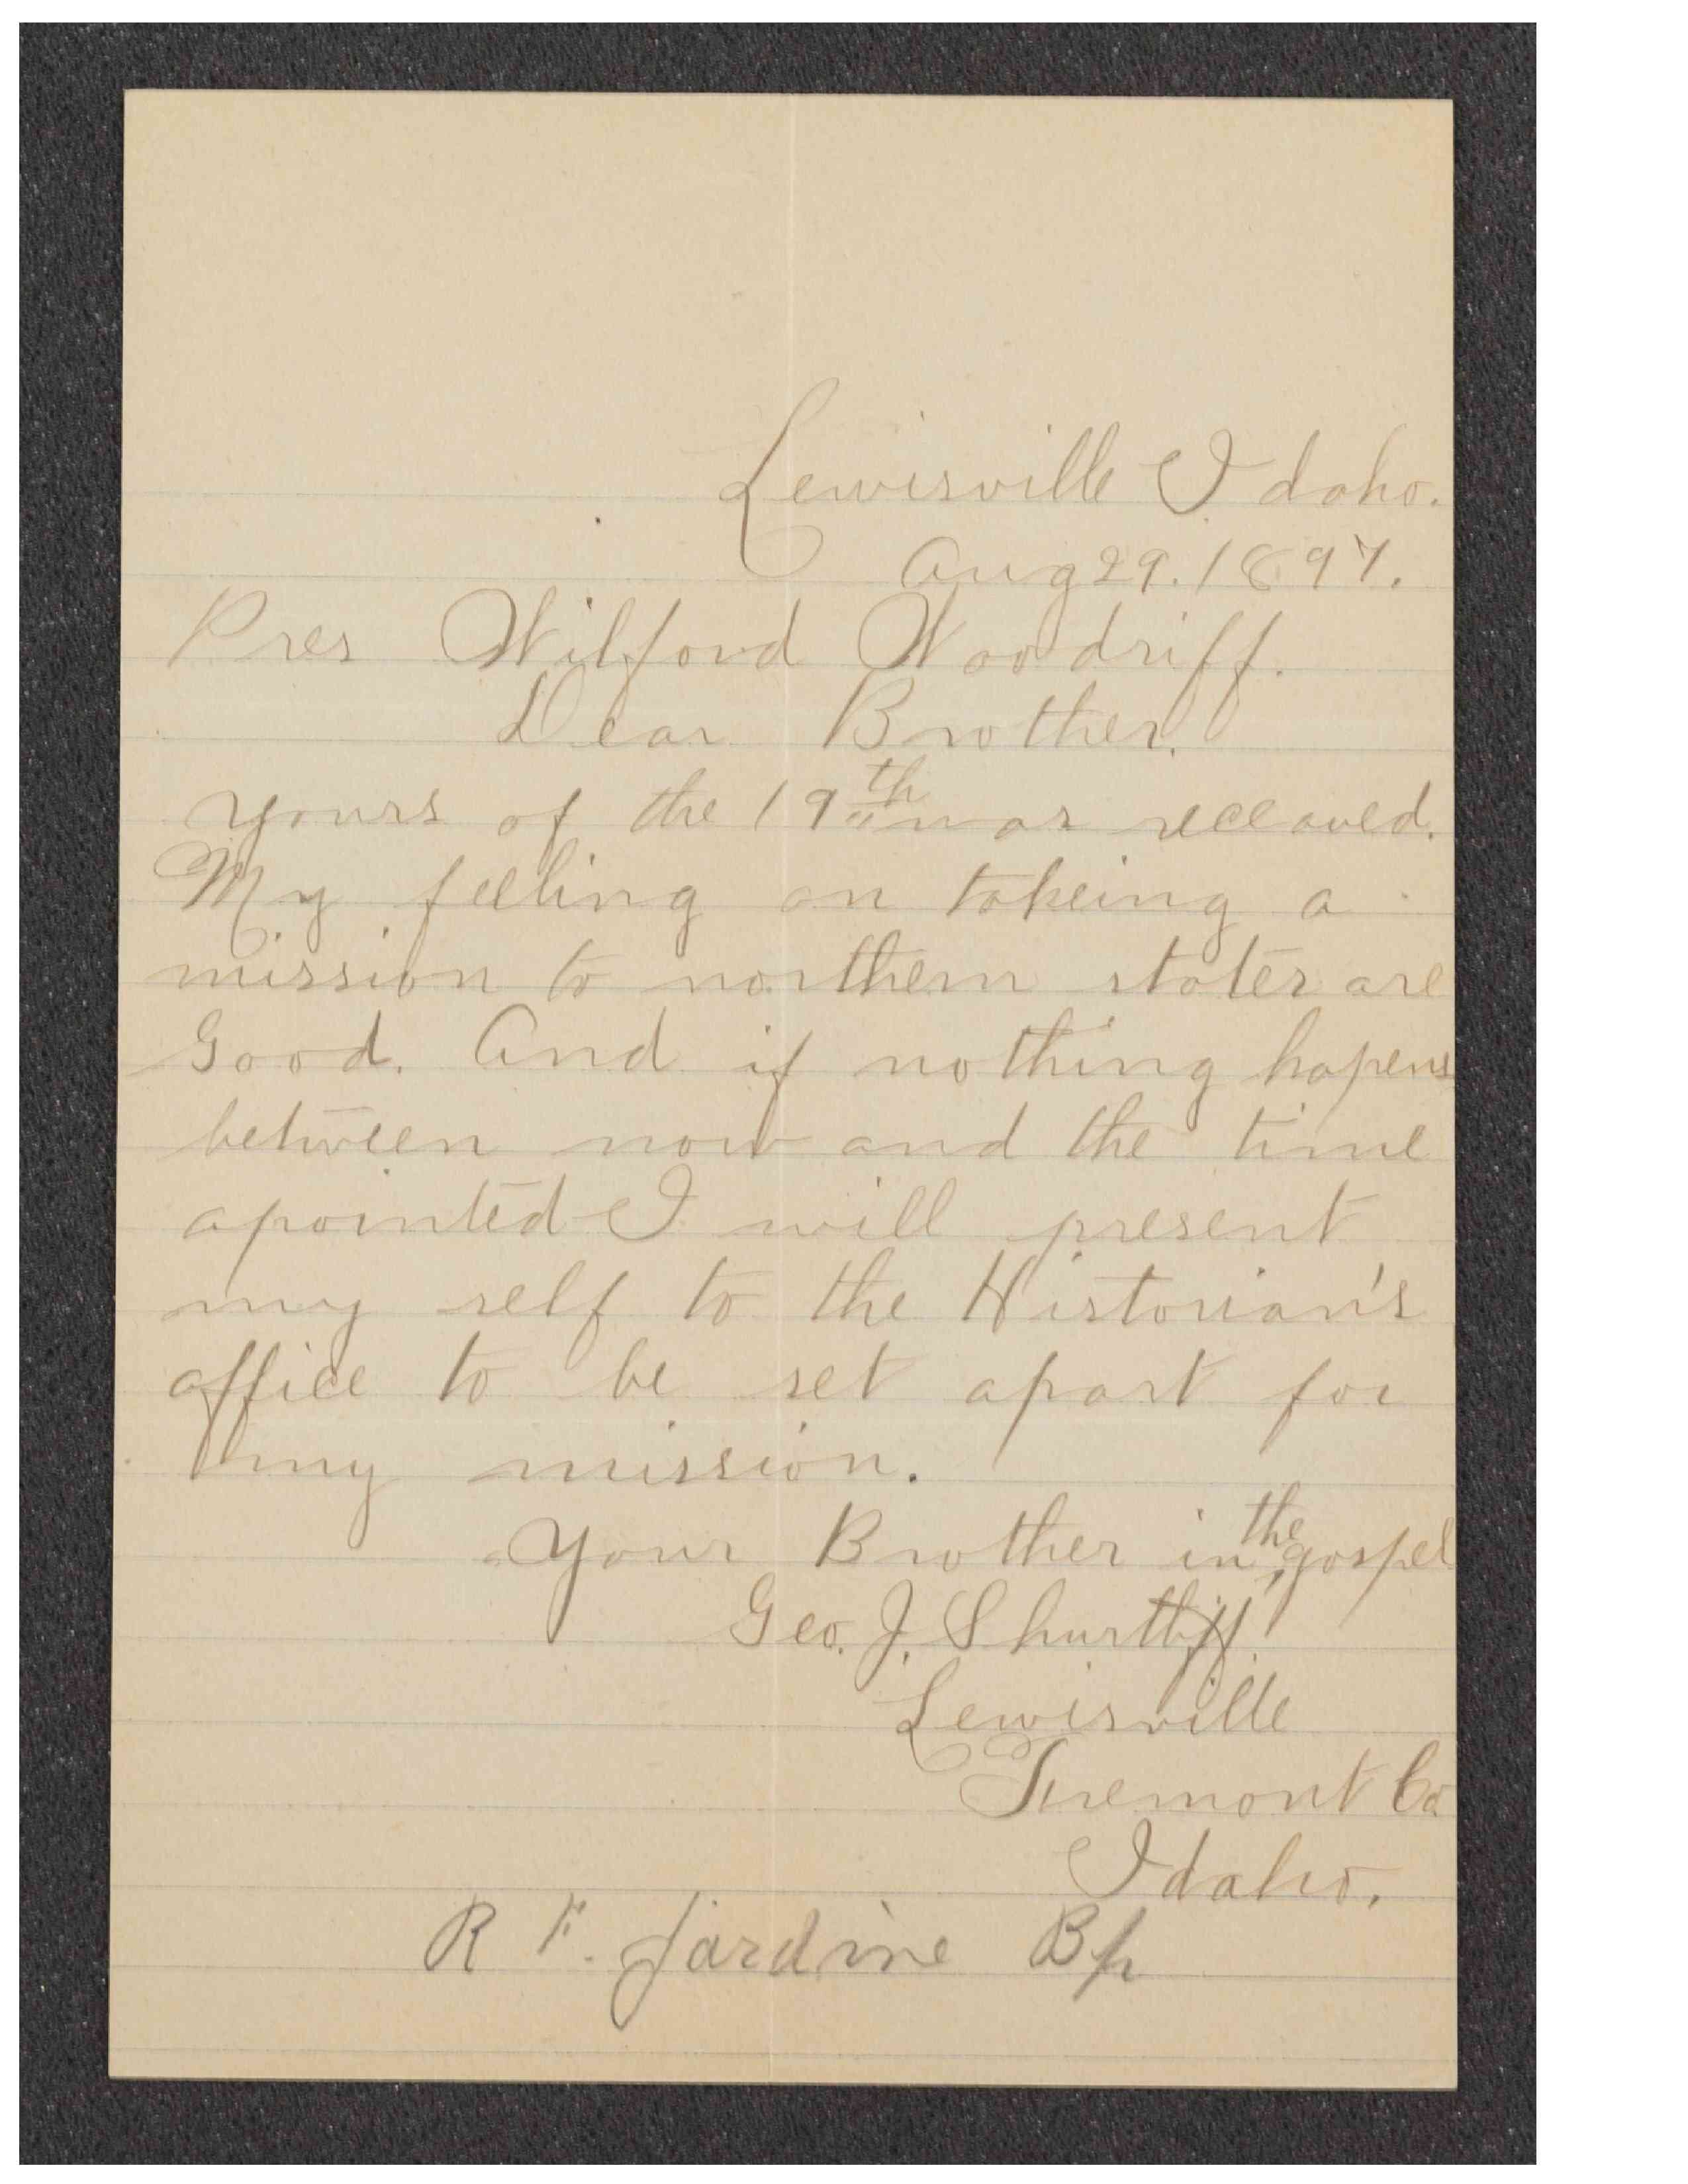 Lewisville Idaho.
Aug 29. 1897.
Pres Wilford Woodriff.
Dear Brother.
Yours of the 19th was receaved.
My feeling on takeing a
mission to northern states are
Good. And if nothing hapens
between now and the time
apointed I will present
my self to the Historian's
office to be set apart for
my mission.
Your Brother in the gospel
Geo. J. Shurtliff.
Lewisville
Fremont Co
Idaho.
R F. Jardine Bp